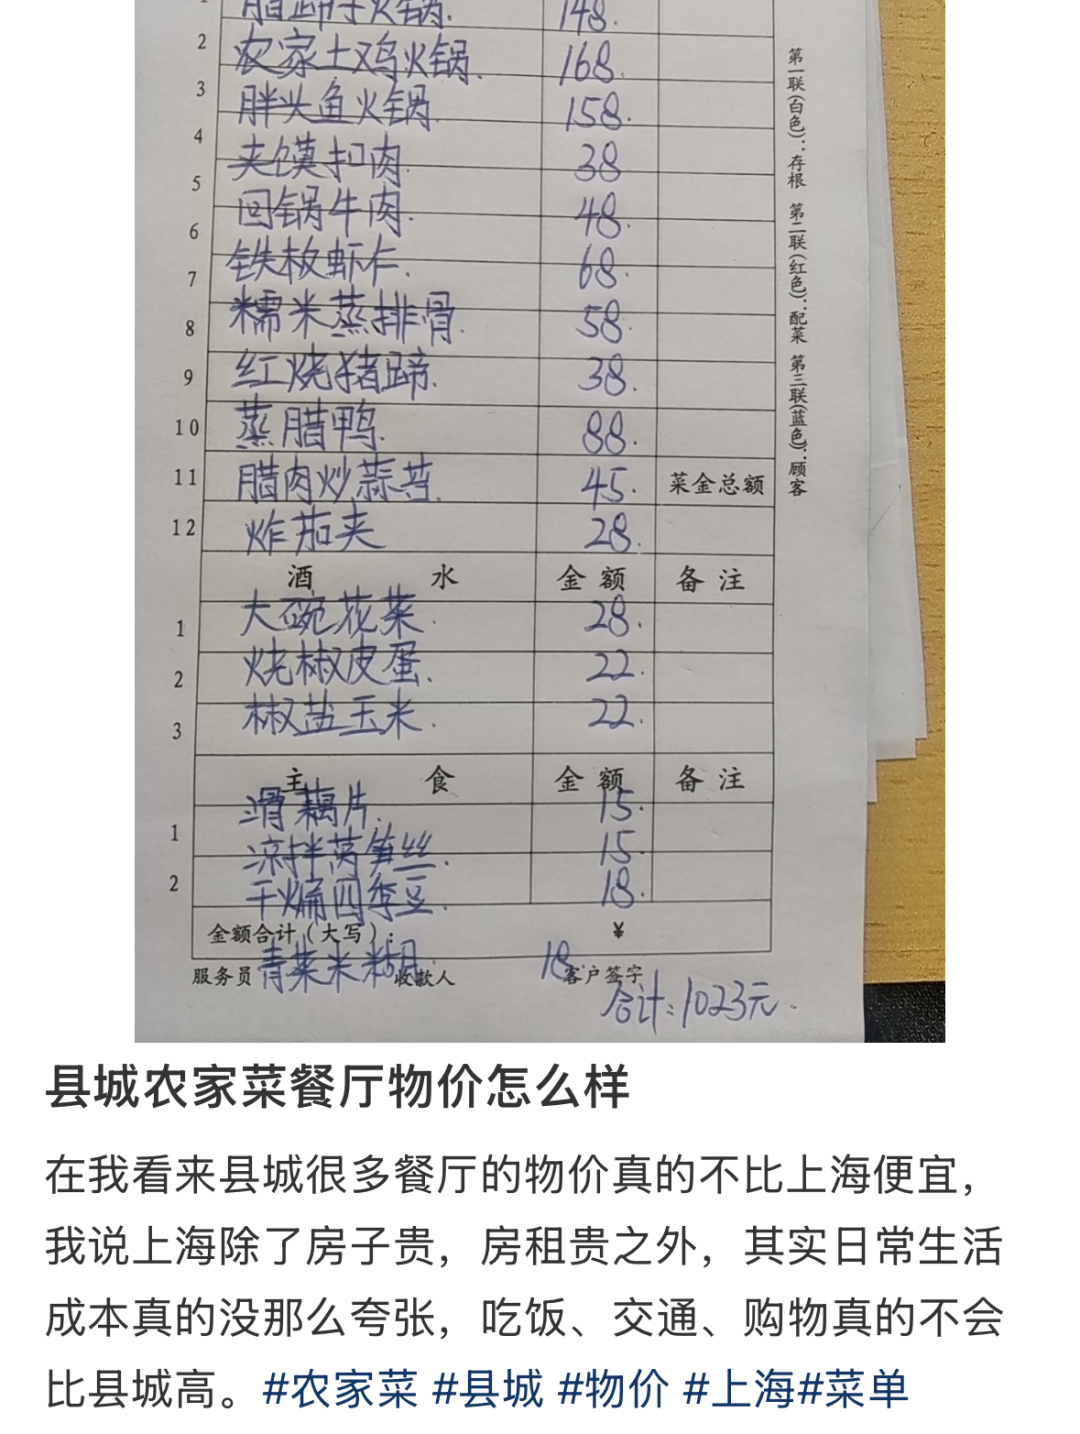 1 腊蹄子火锅. 148.
2 农家土鸡火锅. 168.
3 胖头鱼火锅. 158.
4 夹馍扣肉. 38
5 回锅牛肉. 48.
6 铁板虾仁. 68.
7 糯米蒸排骨. 58.
8 红烧猪蹄. 38.
9 蒸腊鸭. 88.
10 腊肉炒蒜苔. 45.
11 菜金总额
炸茄夹 28.
12
酒 水 金 额 备 注
大碗花菜. 28.
1
烧椒皮蛋. 22.
2
椒盐玉米. 22.
3
主 食 金 额 备 注
滑藕片. 15.
1
凉拌莴笋丝. 15.
2
干煸四季豆. 18.
金额合计(大写): ¥
青菜米糊 18.
服务员 收款人 客户签字
合计:1023元.
第一联(白色):存根 第二联(红色):配菜 第三联(蓝色):顾客
县城农家菜餐厅物价怎么样
在我看来县城很多餐厅的物价真的不比上海便宜，
我说上海除了房子贵，房租贵之外，其实日常生活
成本真的没那么夸张，吃饭、交通、购物真的不会
比县城高。#农家菜 #县城 #物价 #上海#菜单